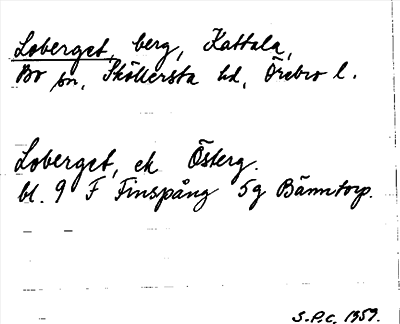 Loberget, berg, Kattala,
Bo sn, Sköllersta hd, Örebro l.
Loberget, ek Österg.
bl. 9 F Finspång 5g Bänntorp.
S.P.C. 1359.